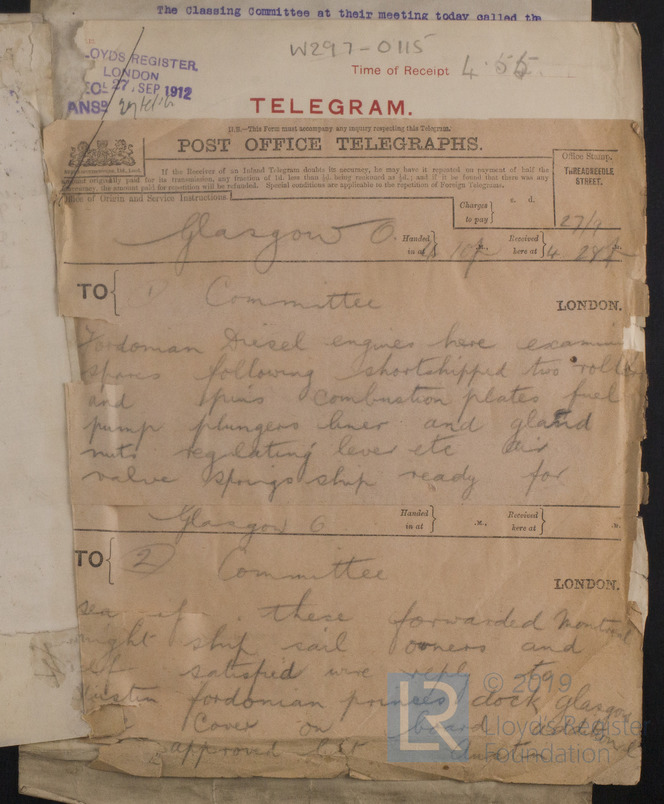 The Classing Committee at their meeting today called the
W297-0115
LOYDS REGISTER,
LONDON
27 SEP 1912
ANSD
Time of Receipt 4.55
TELEGRAM.
N.B.—This Form must accompany any inquiry respecting this Telegram.
POST OFFICE TELEGRAPHS.
If the Receiver of an Inland Telegram doubts its accuracy, he may have it repeated on payment of half the
originally paid for its transmission, any fraction of 1d. less than ½d. being reckoned as ½d.; and if it be found that there was any
inaccuracy, the amount paid for repetition will be refunded. Special conditions are applicable to the repetition of Foreign Telegrams.
Office Stamp.
THREADNEEDLE
STREET.
27/9
Office of Origin and Service Instructions
Charges
to pay
s. d.
Glasgow O.
Handed
in at
Received
here at
TO
Committee
LONDON.
Fordonian Diesel engines here examining
spares following shortshipped two rollers
and pins combustion plates fuel
pump plungers liner and gland
nuts regulating lever etc air
valve springs ship ready for
Glasgow O
Handed
in at
.M.
Received
here at
.M.
TO
2
Committee
LONDON.
sea if these forwarded Montreal
might ship sail owners and
satisfied wire reply to
Austin fordonian princes dock Glasgow
Cover on board
approved list Austin
© 2019
LR
Lloyd's Register
Foundation